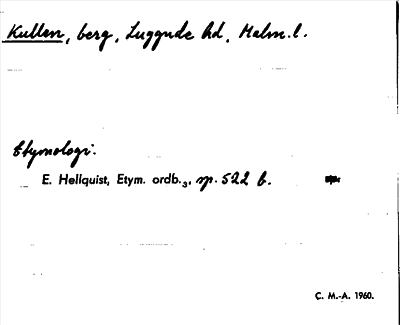 Kullen, berg, Luggude hd, Malm.l.
Etymologi:
E. Hellquist, Etym. ordb.₃, sp. 522 b.
C. M.-A. 1960.